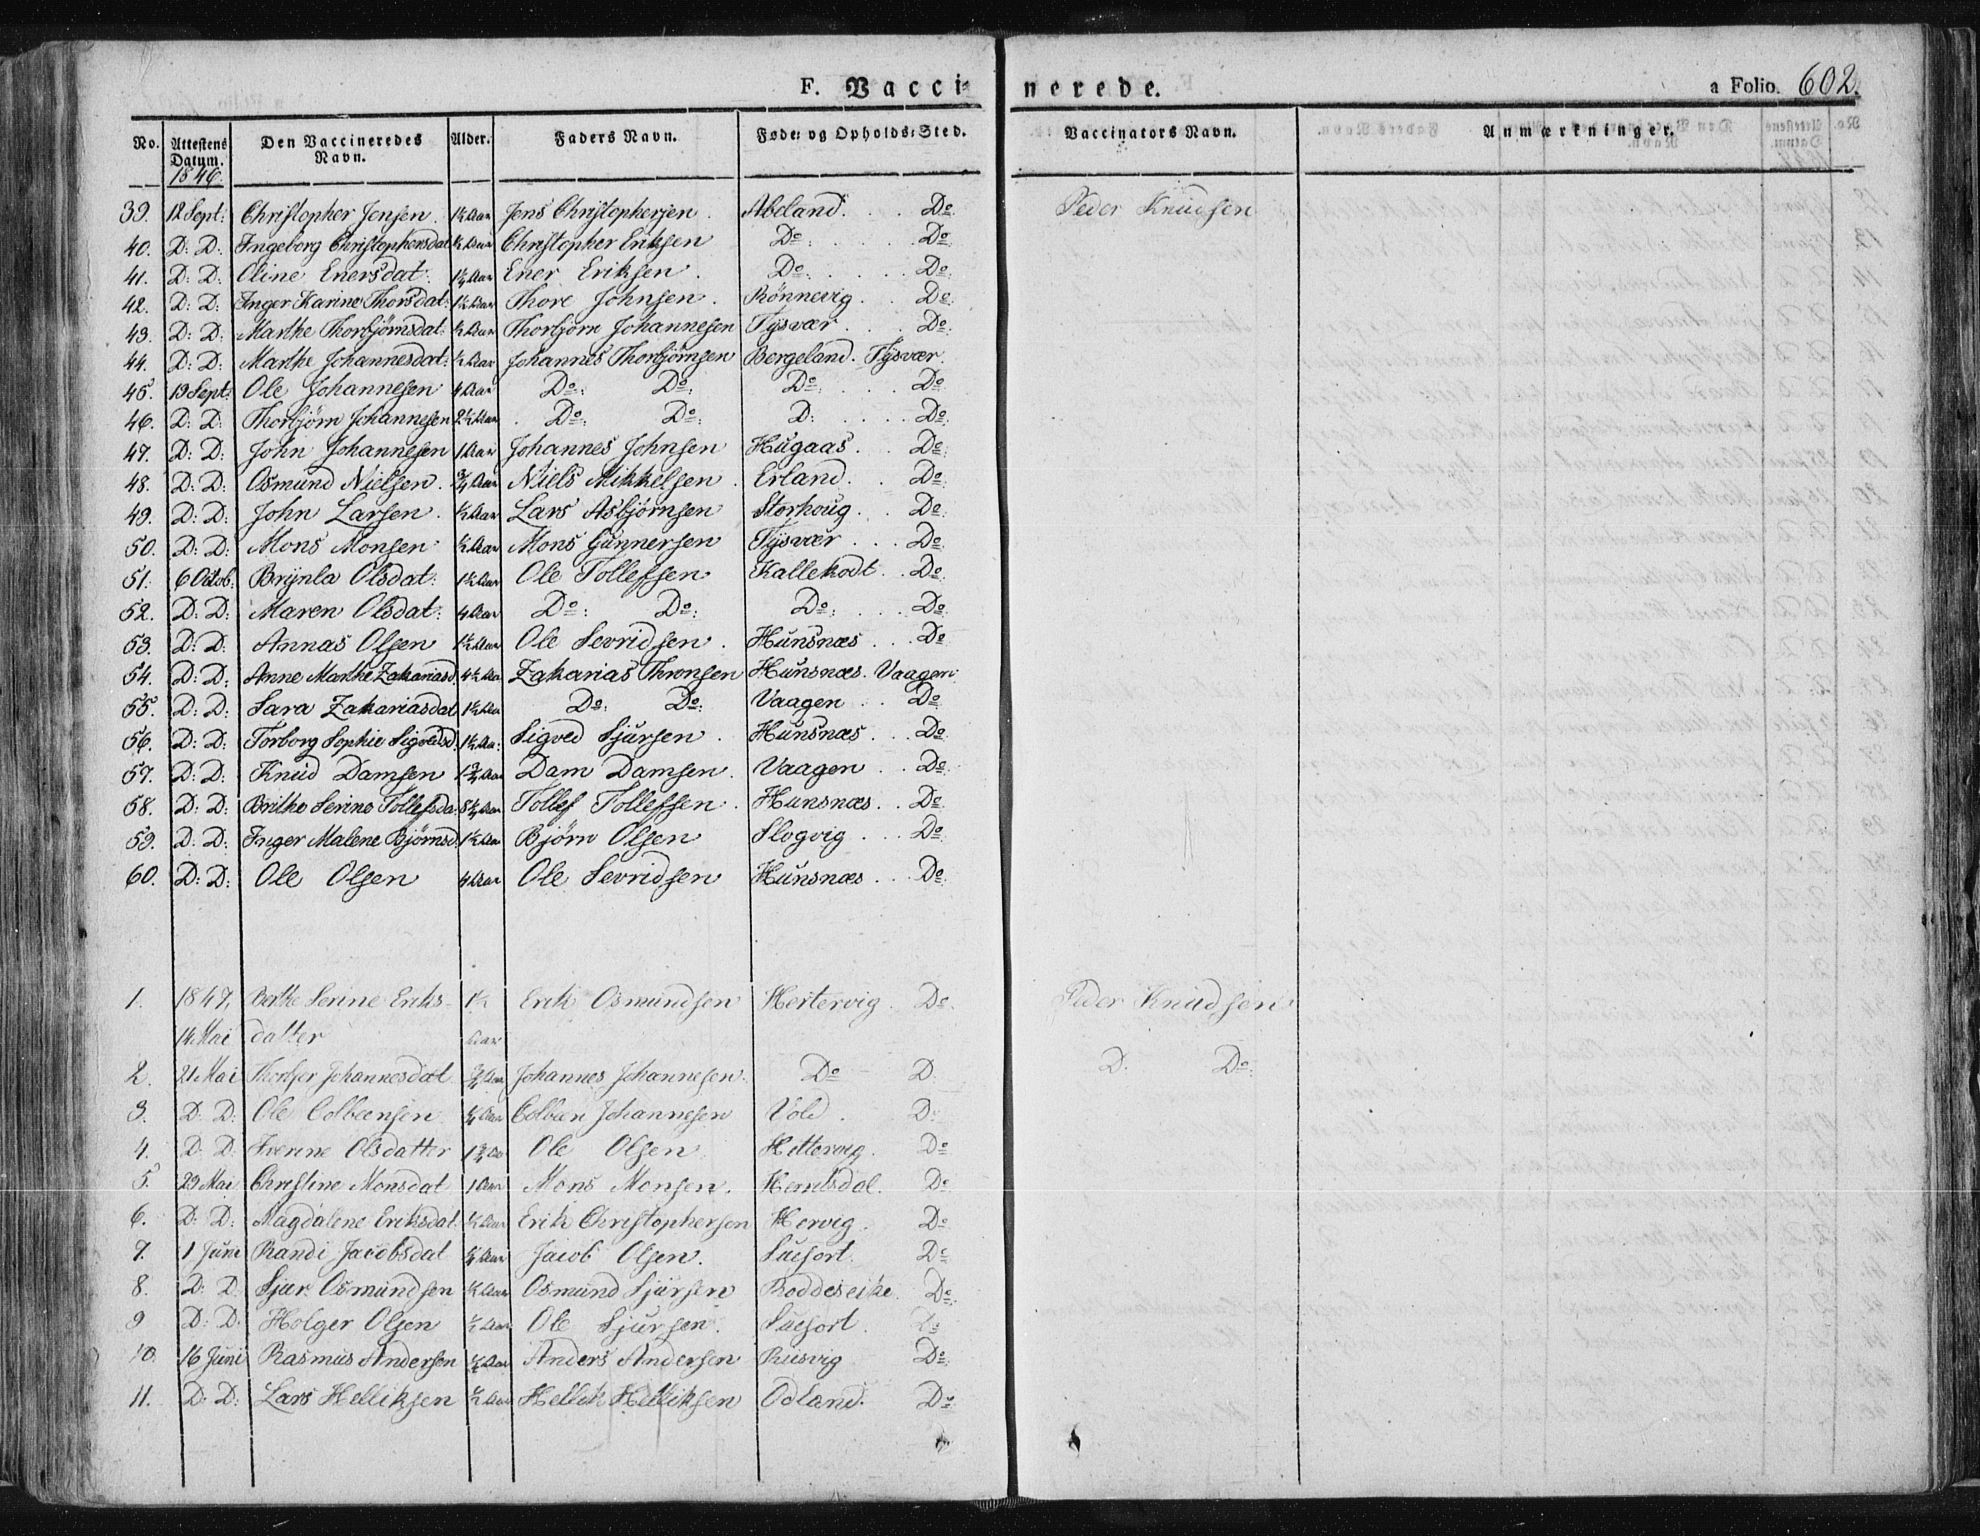 F. Vaccinerede. a Folio. 602.
No. Attestens Datum. Den Vaccineredes Navn. Alder. Faders Navn. Føde- og Opholds-Sted. Vaccinators Navn. Anmærkninger.
1846.
39. 12 Sept: Christopher Jensen. 1½ Aar Jens Christophersen. Abeland. . . Do Peder Knudsen
40. D: D: Ingeborg Christophersdat ½ Aar Christopher Eriksen Do: . . . . Do
41. D: D: Oline Enersdat: 1½ Aar Ener Eriksen. Do: . . . . Do:
42. D: D: Inger Karine Thorsdat: 1½ Aar Thore Johnsen. Rönnevig. . . Do:
43. D: D: Marthe Thorbjörnsdat: ½ Aar Thorbjörn Johannesen Tysvær. . . . Do:
44. D: D: Marthe Johannesdat: ½ Aar Johannes Thorbjörnsen Bergeland. Tysvær.
45. 13 Sept: Ole Johannesen 4 Aar Do: Do: Do: . . Do:
46. D: D: Thorbjörn Johannesen 2½ Aar . Do: Do: D: . . . . Do:
47. D: D: John Johannesen 1 Aar Johannes Johnsen Hugaas. . . Do:
48. D: D: Osmund Nielsen. ¾ Aar Niels Mikkelsen. Erland. . Do:
49. D: D: John Larsen. ½ Aar Lars Asbjörnsen Storhoug. . Do:
50. D: D: Mons Monsen ½ Aar Mons Gunnersen Tysvær . . . Do:
51. 6 Octob. Brynla Olsdat: 1½ Aar Ole Tollefsen Kallekodt. . Do:
52. D: D: Maren Olsdat: 4 Aar Do: Do: Do: . . . Do:
53. D: D: Annas Olsen 1½ Aar Ole Sevridsen. Hunsnæs . . Do
54. D: D: Anne Marthe Zakariasd. 4½ Aa Zakarias Thronsen Hunsnæs. Vaagen
55. D: D: Sara Zakariasdat 1½ Aa Do: Do: Vaagen . . Do
56. D: D: Torborg Sophie Sigvedsd. 1½ Aa: Sigved Sjursen. Hunsnæs . . Do:
57. D: D: Knud Damsen 1¾ Aar Dam Damsen. Vaagen . . Do:
58. D: D: Brithe Serine Tollefsda: Aar Tollef Tollefsen. Hunsnæs. . Do:
59. D: D: Inger Malene Björnsd. 1½ Aar Björn Olsen Slogvig . . Do:
60. D: D: Ole Olsen 4 Aar Ole Sevridsen Hunsnæs . . . Do
1. 1847, Berthe Serine Eriks- 1½ Erik Osmundsen Hertervig. Do. Peder Knudsen
14 Mai datter Aar
2. 21 Mai Johannesdat ¾ Aar Johannes Johannesen. Do D. D. Do:
3. D: D: Ole Colbensen Aar Colben Johannesen Vold. D:
4. D: D: Iverine Olsdatter 1¾ Aa Ole Olsen Do
5. 29 Mai Christine Monsdat 1 Aar Mons Monsen. Do
6. D: D: Magdalene Eriksdat. ½ Aar Erik Christophersen Hervig. Do
7. 1 Juni Randi Jacobsdat Aar Jacob Olsen. Do
8. D: D: Sjur Osmundsen ½ Aar Osmund Sjursen Do
9 D: D: Holger Olsen ½ Aar Ole Sjursen. Do
10. 16 Juni Rasmus Andersen ½ Aar Anders Andersen Do
11. D: D: Lars Helliksen ½ Aar Hellik Helliksen Odland. Do